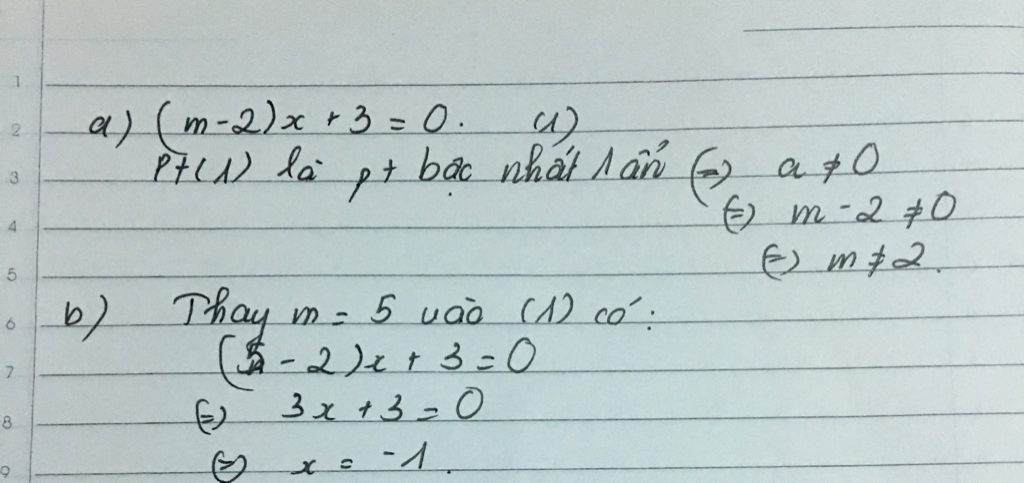 1
2
3
4
5
6
7
8
9
a) (m-2)x + 3 = 0. (1)
Pt(1) là pt bậc nhất 1 ẩn (=) a ≠ 0
(=) m - 2 ≠ 0
(=) m ≠ 2.
b) Thay m = 5 vào (1) có:
(5 - 2)x + 3 = 0
(=) 3x + 3 = 0
(=) x = -1.